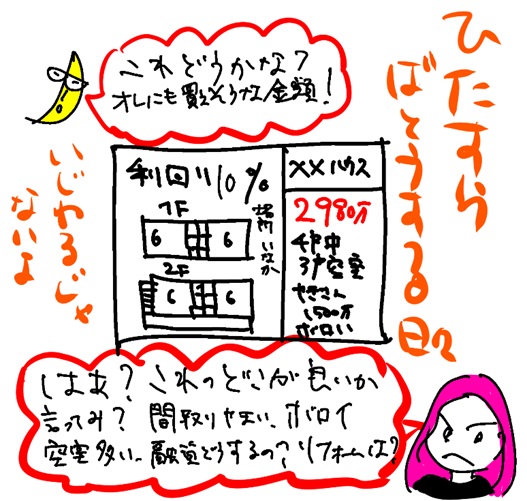 これどうかな?
オレにも買えそうな金額!
ひたすら
ばとうする日々
いじわるじゃ
ないよ
利回り10%
場所 いなか
1F
6 6
2F
6 6
××ハウス
2980万
4戸中
3戸空室
1500万
ボロい
はあ?これのどこが良いか
言ってみ? 間取りやすい、ボロイ
空室多い、融資どうするの?リフォームは?